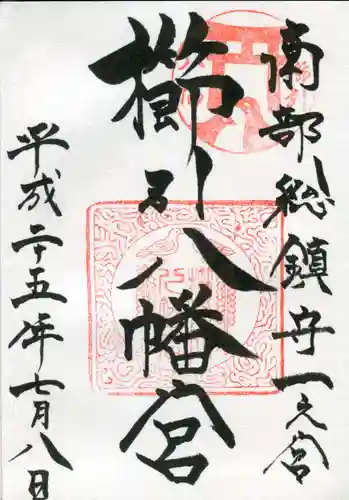 南部総鎮守一之宮
櫛引八幡宮
平成二十五年七月八日